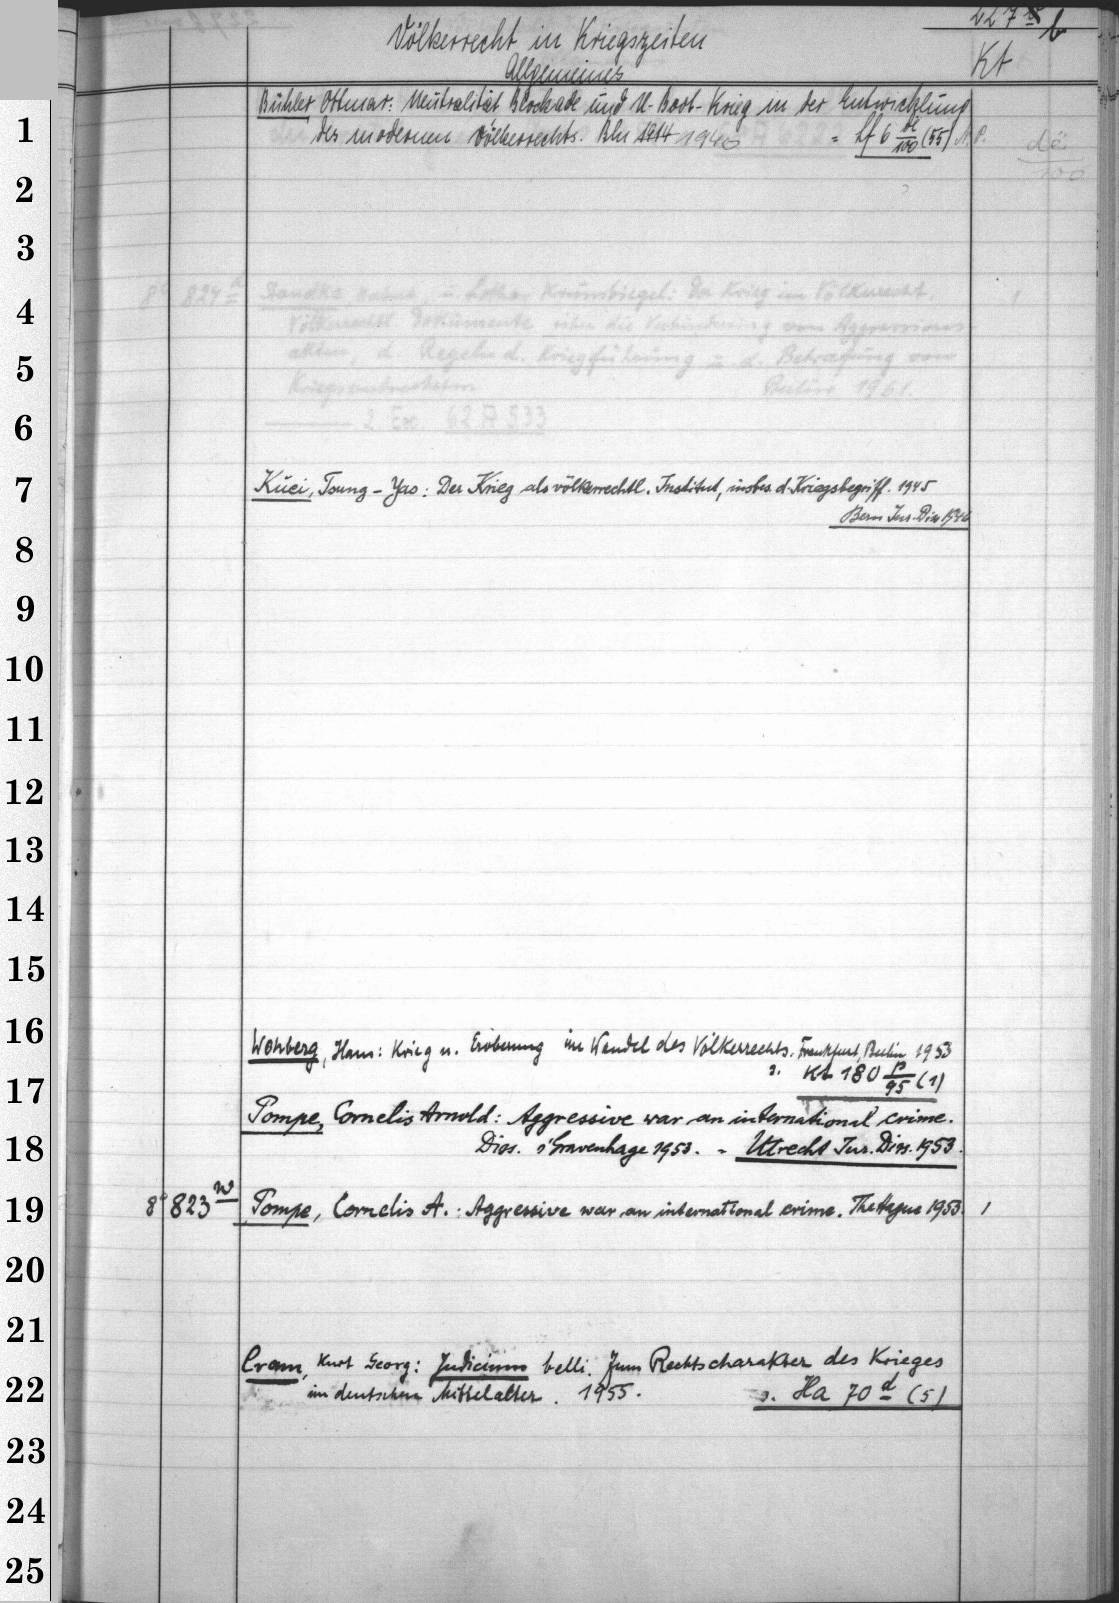 227 b
Völkerrecht in Kriegszeiten
Kt
Allgemeines
Bühler, Ottmar: Neutralität Blockade und U-Boot-Krieg in der Entwicklung
1 des modernen Völkerrechts. Bln 1914 1940 = Lf 6 dë/100 (55) N.P. dë/100
2
3
8° 824 Standke u. Lothar Krumbiegel: Der Krieg im Völkerrecht. 1
4 Völkerrechtl. Dokumente über die Verhinderung von Aggressions-
5 akten, d. Regeln d. Kriegführung u. d. Bestrafung von
Kriegsverbrechern Berlin 1961.
6 2. Ex. 62 A 533
7 Kuei, Tsung-Yao: Der Krieg als völkerrechtl. Institut, insbes. d. Kriegsbegriff. 1945
Bern Jur. Diss 1946
8
9
10
11
12
13
14
15
16 Wehberg, Hans: Krieg u. Eroberung im Wandel des Völkerrechts. Frankfurt, Berlin 1953
17 s. Kt 180 p/95 (1)
Pompe, Cornelis Arnold: Aggressive war an international crime.
18 Diss. s'Gravenhage 1953. = Utrecht Jur. Diss. 1953.
19 8° 823 w Pompe, Cornelis A.: Aggressive war an international crime. The Hague 1953. 1
20
21
Cram, Kurt Georg: Judicium belli. Zum Rechtscharakter des Krieges
22 im deutschen Mittelalter. 1955. s. Ha 70 d (5)
23
24
25